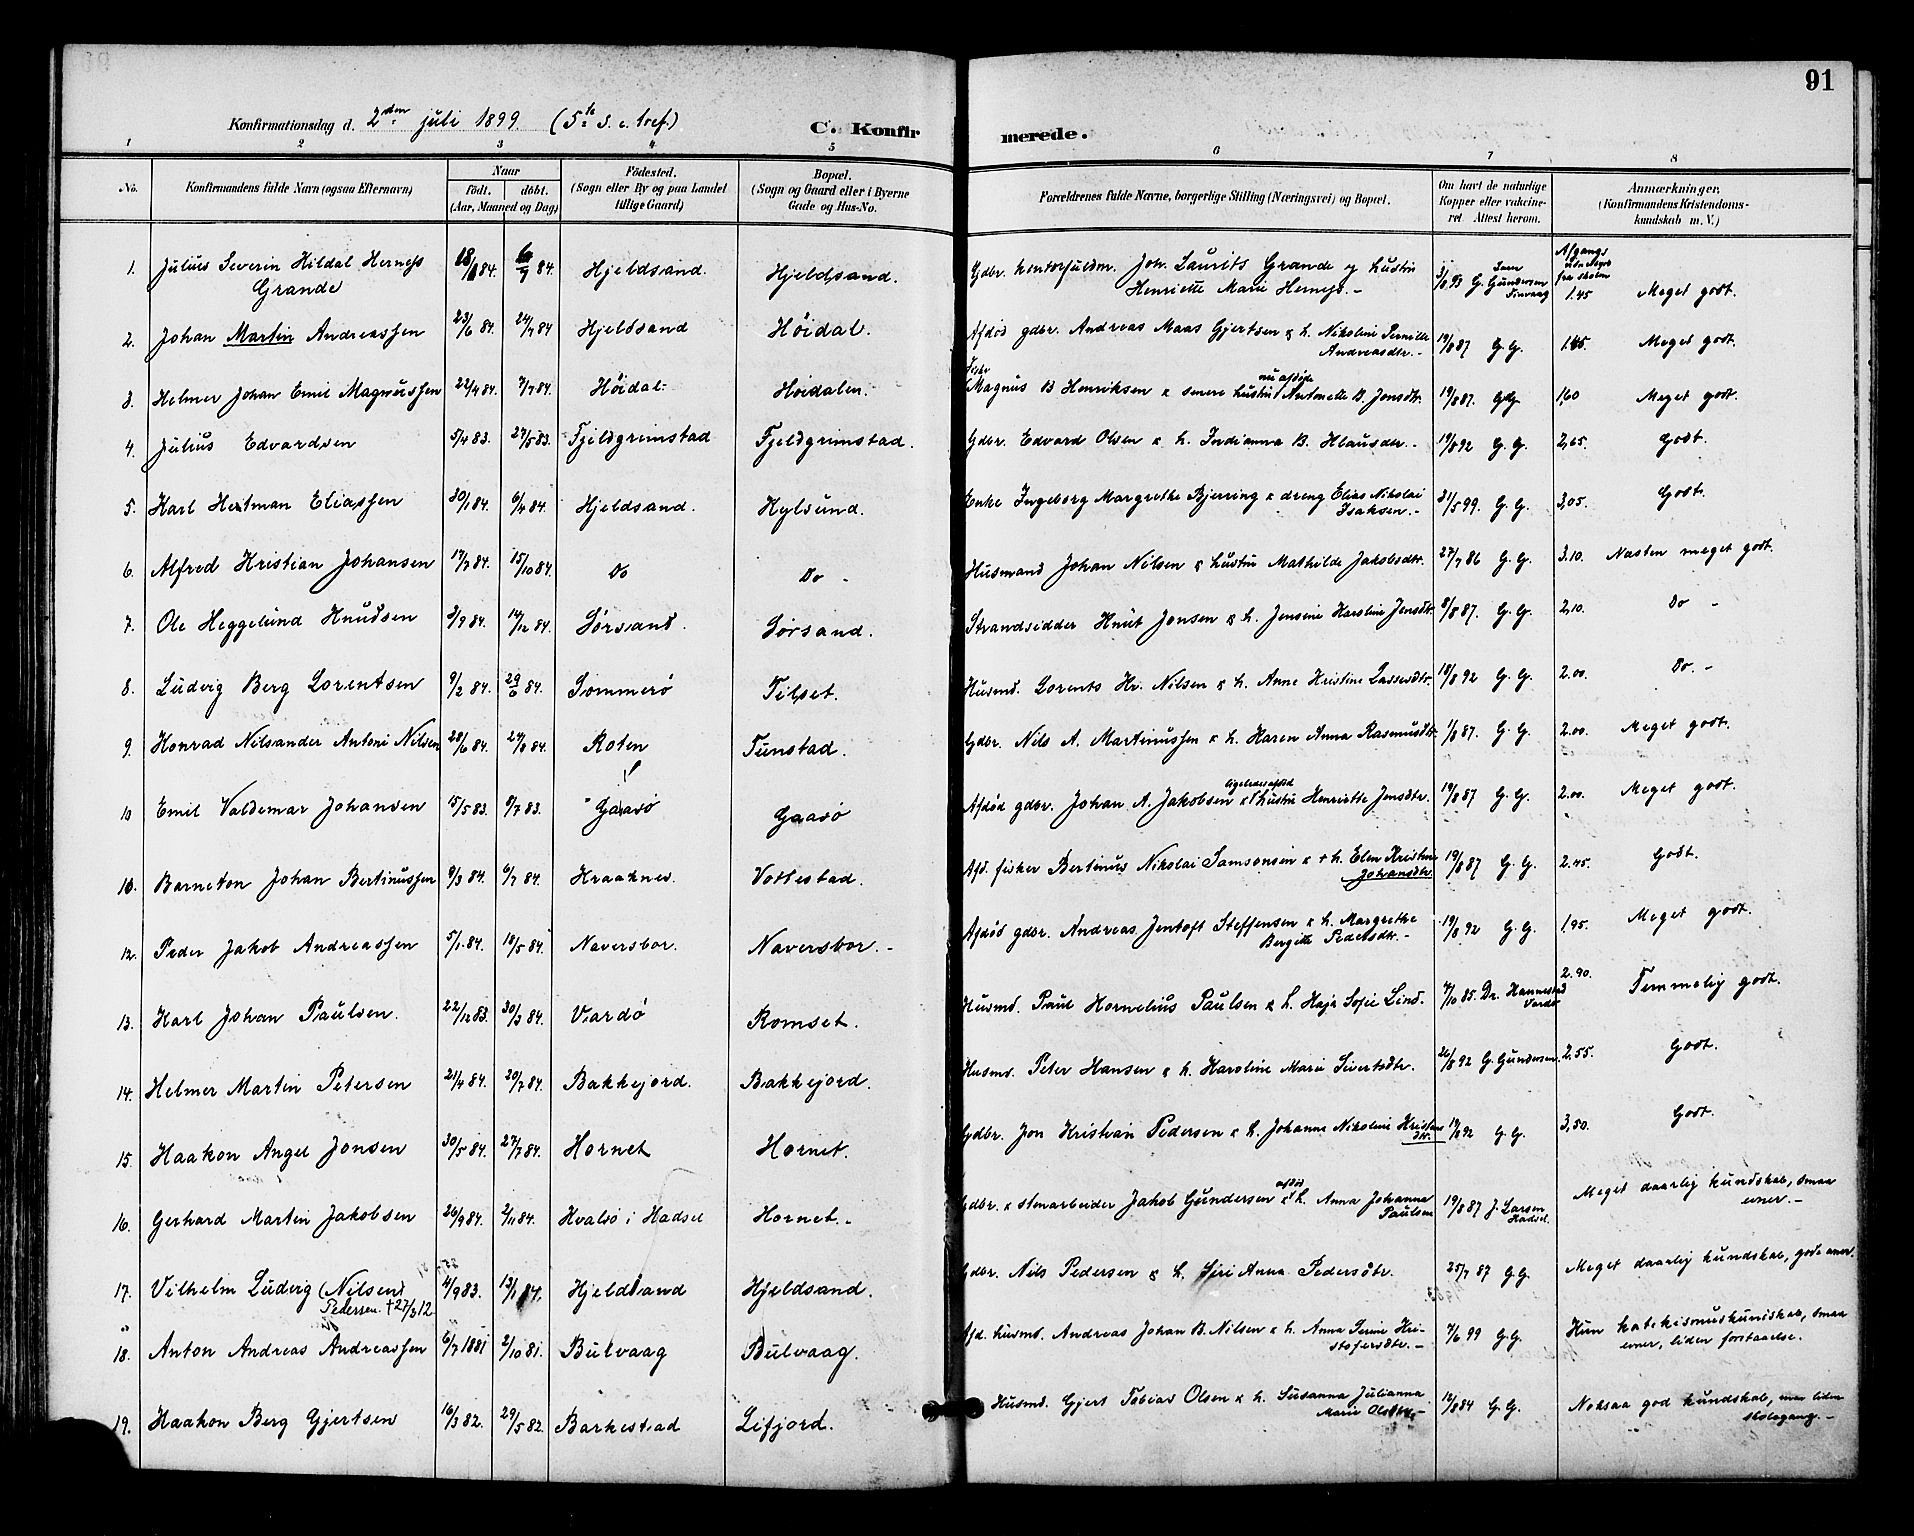 91
Konfirmationsdag d. 2den juli 1899 (5te s. e. tref.) C. Konfirmerede.
1 2 3 4 5 6 7 8
No. Konfirmandens fulde Navn (ogsaa Efternavn) Naar födt. döbt. (Aar, Maaned og Dag) Födested. (Sogn eller By og paa Landet tillige Gaard) Bopæl. (Sogn og Gaard eller i Byerne Gade og Hus-No. Forældrenes fulde Navne, borgerlige Stilling (Næringsvei) og Bopæl. Om havt de naturlige Kopper eller vaccineret. Attest herom. Anmærkninger. (Konfirmandens Kristendomskundskab m. V.)
1. Julius Severin Hildal Herness Grande 84. 84. Hjeldsand. Hjeldsand. Gdbr. Joh. Laurits Grande og hustru Henriette Marie Herness.- 93 G. Gundersen Afgangs fra skolen 1.45 Meget godt.
2. Johan Martin Andreassen 23/6 84. 24/7 84 Hjeldsand Höidal. Afdød gdbr. Andreas Maas Gjertsen & h. Nikoline Pernille Andreasdtr.- 19/8 87 G. G. Meget godt.
3. Helmer Johan Emil Magnussen 22/4 84. 7/7 84. Höidal Höidalen. Magnus B Henriksen & senere hustru nu afdøde Antonette B. Jensdtr. 19/8 87. G G 1.60 Meget godt.
4. Julius Edvardsen 5/4 83. 27/5 83. Fjeldgrimstad Fjeldgrimstad. Gdbr. Edvard Olsen & h. Indianna B. Klausdtr.- 19/8 92 G. G. 2.65. Godt.
5. Karl Hertman Eliassen 30/1 84. 6/4 84. Hjeldsand. Kylsund. Enke Ingeborg Margrethe Bjerring & dreng Elias Nikolai Isaksen.- 31/5 99. G. G. 3.05. Godt.
6. Alfred Kristian Johansen 17/7 84. 15/10 84. Do Do - Husmand Johan Nilsen & hustru Mathilde Jakobsdtr. 27/7 86 G. G. 3.10. Næsten meget godt.
7. Ole Heggelund Knudsen 3/9 84. 14/12 84. Sörsand. Sörsand. Strandsidder Knut Jonsen & h. Jensine Karoline Jensdtr. 8/8 87. G. G. 2.10. Do -
8. Ludvig Berg Lorentsen 9/2 84. 29/6 84. Sommerö Tilset. Husmd. Lorents Kr. Nilsen & h. Anne Kristine Lassesdtr. 18/8 92 G. G. 2.00. Do. -
9. Konrad Nilsander Antoni Nilsen 28/6 84. 24/8 84. Roten Tunstad. Gdbr. Nils A. Martinussen & h. Karen Anna Rasmusdtr. 1/8 87. G. G. 2.00. Meget godt.
10 Emil Valdemar Johansen 15/5 83. 8/7 83. Gaasö Gaasö Afdød gdbr. Johan A. Jakobsen & ligeledes afdød hustru Henriette Jensdtr. 19/8 87 G. G. 2.00. Meget godt.
10. Barneton Johan Bertinussen 9/3 84. 6/7 84. Kraaknes. Vottestad. Afd. fisker Bertinus Nikolai Samsonsen & + h. Elen Kristine Johansdtr. 19/8 87 G. G. 2.45. Godt.
12. Peder Jakob Andreassen 5/1 84. 18/5 84. Naversbor. Naversbor. - Afdød gdbr. Andreas Jentoft Steffensen & h. Margrethe Bergitte Pedersdtr.- 19/8 92 G. G. 1.95. Meget godt.
13. Karl Johan Paulsen. 22/12 83. 30/3 84. Vardö Romset. Husmd. Paul Kornelius Paulsen & h. Kaja Sofie Lind. 7/10 85. Dr. Hannestad Vardö 2.90. Temmelig godt.
14. Helmer Martin Petersen 21/4 84. 20/7 84. Bakkejord. Bakkejord. Husmd. Peter Hansen & h. Karoline Marie Sivertsdtr. 26/8 92 G. Gundersen. 2.55. Godt.
15. Haakon Angel Jonsen 30/5 84. 27/7 84. Hornet Hornet. Gdbr. Jon Kristian Pedersen & h. Johanne Nikoline Kristensdtr. 19/8 92 G. G. 3.50. Godt.
16. Gerhard Martin Jakobsen 26/9 84. 2/11 84. Hvalsö i Hadsel Hornet. - Gdbr. & stenarbeider Jakob Gundersen & afdød h. Anna Johanna Paulsen 19/8 87 J. Larsen Hadsel. Meget daarlig kundskab, smaa evner.-
17. Vilhelm Ludvig (Nilsen) Pedersen. +27/3 12. 4/9 83. 13/1 84. Hjeldsand Hjeldsand. Gdbr. Nils Pedersen & h. Siri Anna Pedersdtr. 25/7 87 G. G. Meget daarlig kundskab, gode evner.
18. Anton Andreas Andreassen 6/7 1881 2/10 81. Bulvaag Bulvaag. Afd. husmd. Andreas Johan B. Nilsen & h. Anna Serine Kristofersdtr.- 7/6 99 G. G. Kun katekismuskundskab, smaa evner, liden forstaaelse.
19. Haakon Berg Gjertsen 16/3 82. 29/5 82. Barkestad Lifjord. Husmd. Gjert Tobias Olsen & h. Susanna Julianna Marie Olsdtr.- 12/8 84 G. G. Noksaa god kundskab, men liden skolegang.-